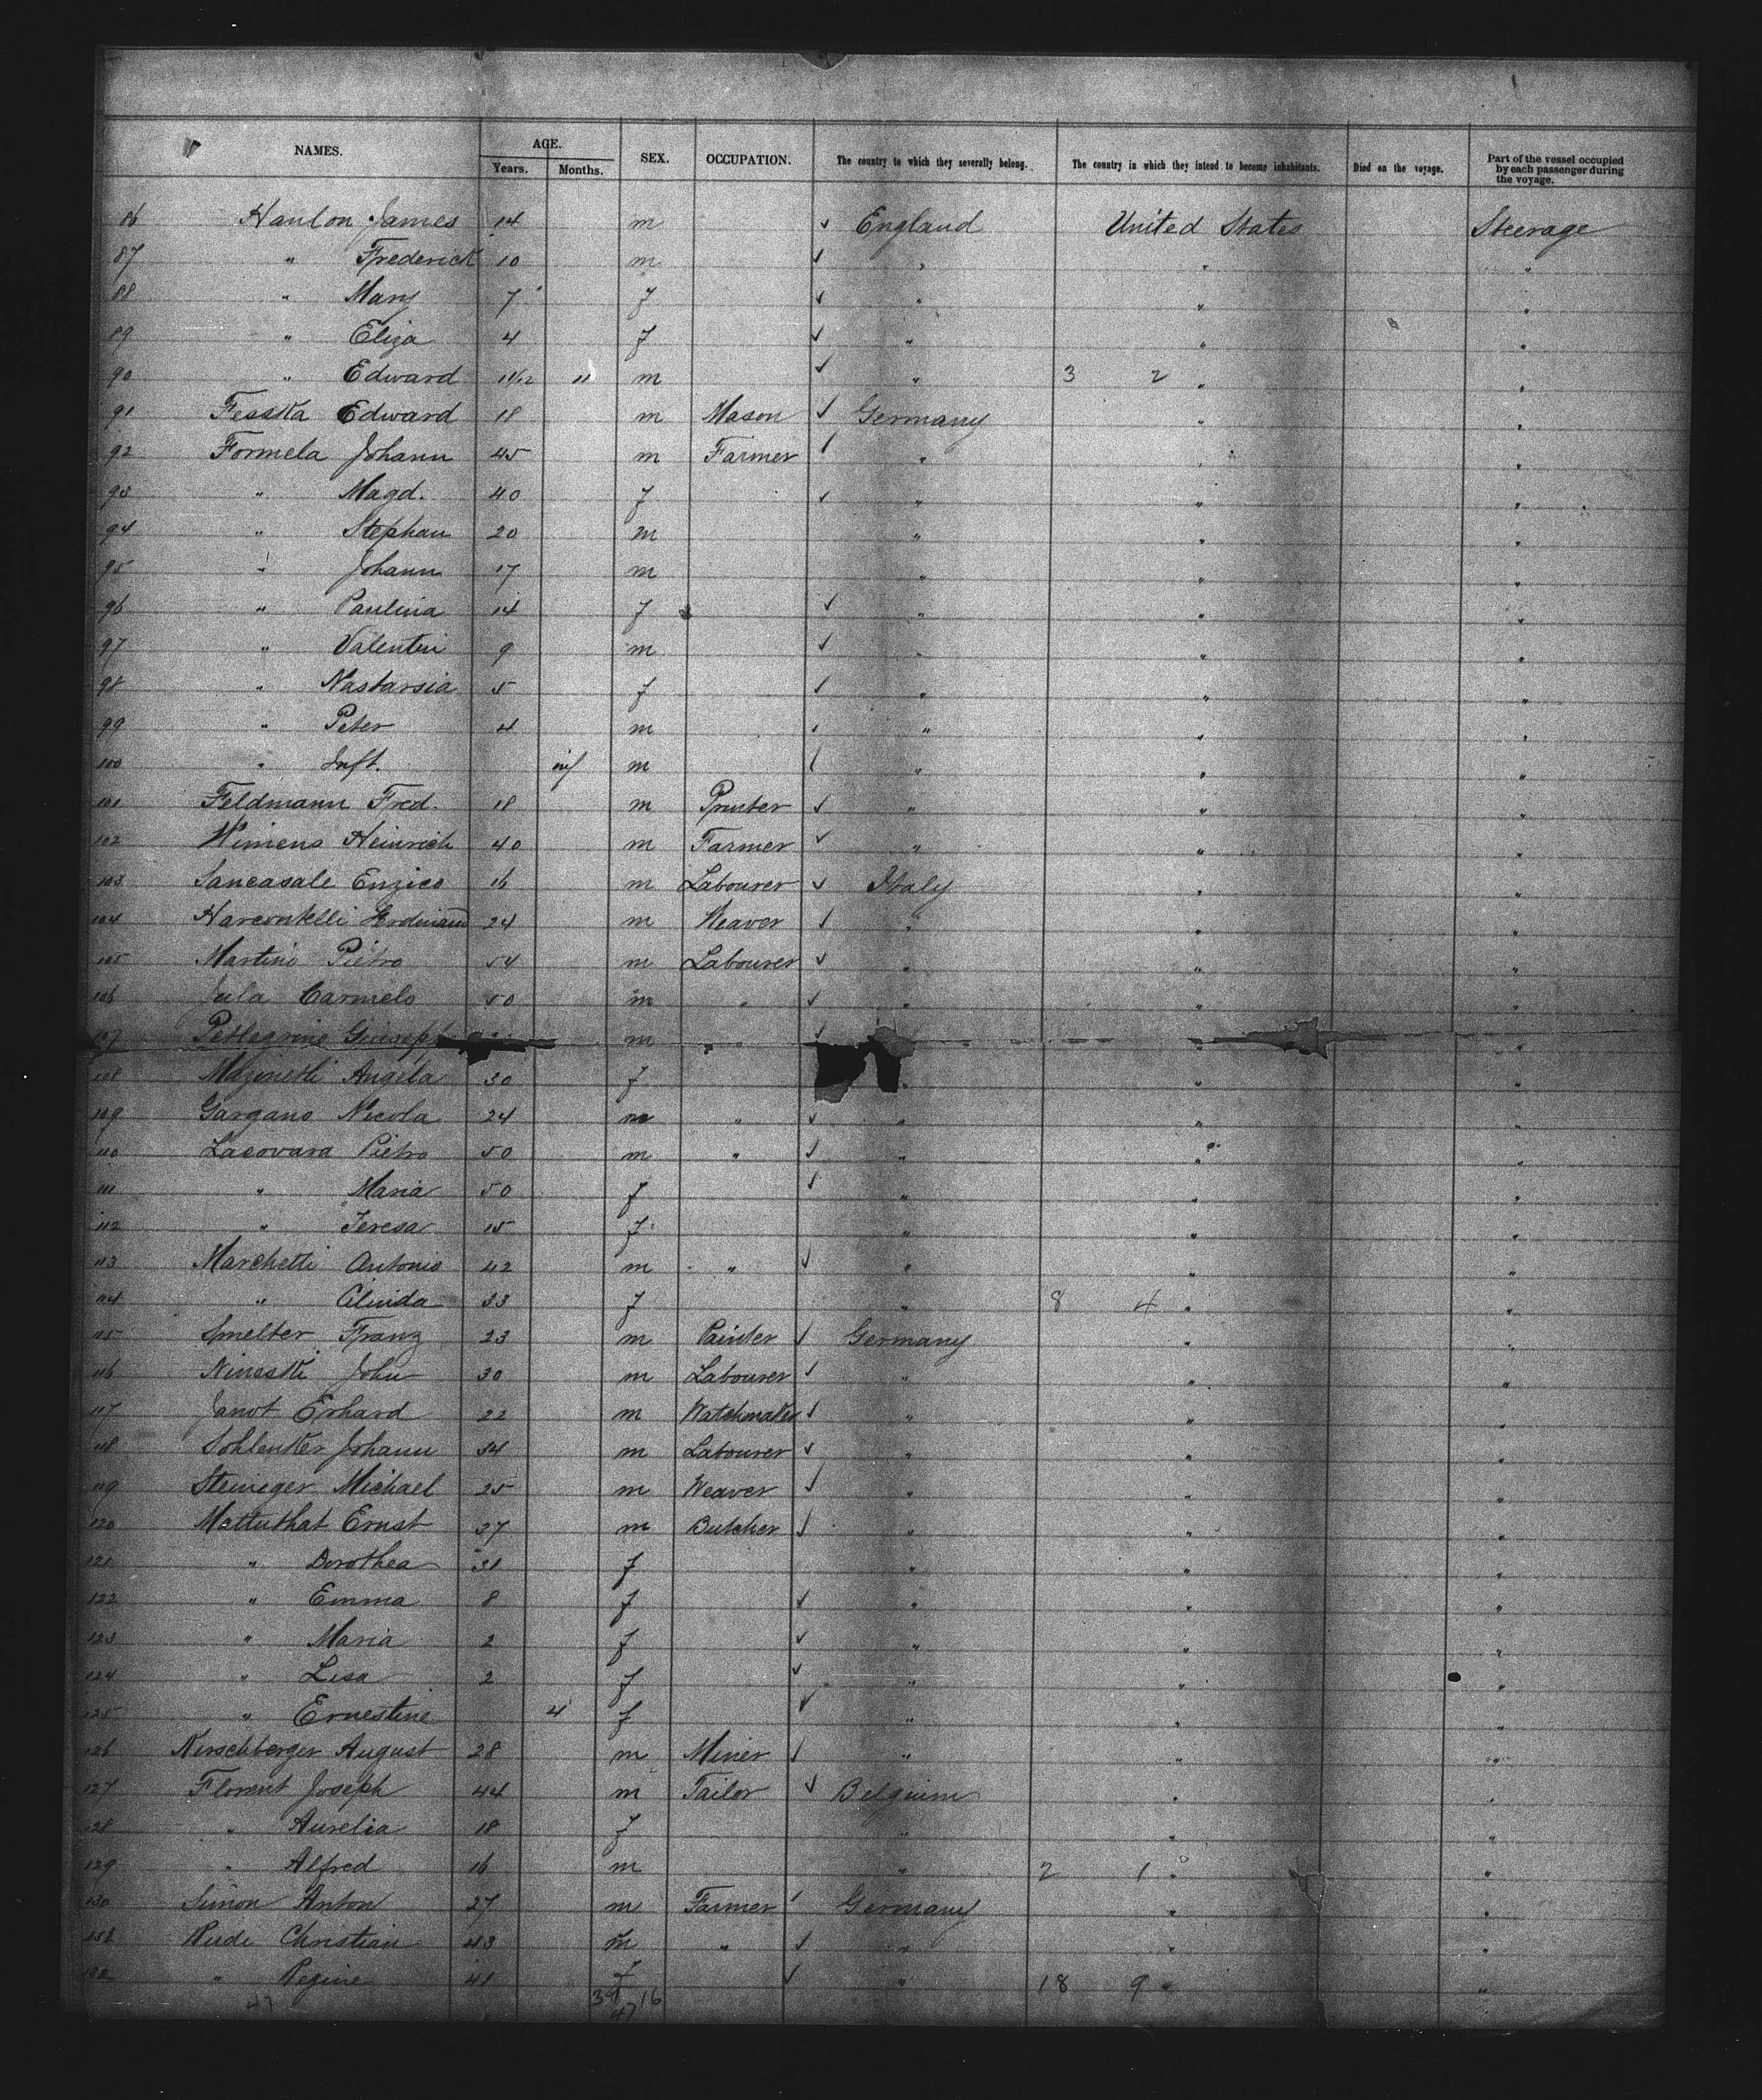 NAMES. AGE. Years. Months. SEX. OCCUPATION. The country to which they severally belong. The country in which they intend to become inhabitants. Died on the voyage. Part of the vessel occupied by each passenger during the voyage.
86 Hanlon James 14 m ✓ England United States Steerage
87 " Frederick 10 m ✓ " " "
88 " Mary 7 f ✓ " " "
89 " Eliza 4 f ✓ " " "
90 " Edward 11/12 11 m ✓ " 3 2 " "
91 Fesska Edward 18 m Mason ✓ Germany " "
92 Formela Johann 45 m Farmer ✓ " " "
93 " Magd. 40 f ✓ " " "
94 " Stephan 20 m " " "
95 " Johann 17 m " " "
96 " Paulina 14 f ✓ " " "
97 " Valentin 9 m ✓ " " "
98 " Nastarsia 5 f ✓ " " "
99 " Peter 4 m " " "
100 " Inft. inf m " " "
101 Feldmann Fred. 18 m Printer ✓ " " "
102 Wimens Heinrich 40 m Farmer ✓ " " "
103 Sancasale Enrico 16 m Labourer ✓ Italy " "
104 Harcontelli Ferdinand 24 m Weaver ✓ " " "
105 Martino Pietro 54 m Labourer ✓ " " "
106 Jula Carmelo 50 m " ✓ " " "
107 Pellegrino Giusepp m " ✓ " "
108 Angela 30 f " " "
109 Gargano Nicola 24 m " ✓ " " "
110 Lacovara Pietro 50 m " ✓ " " "
111 " Maria 50 f ✓ " " "
112 " Teresa 15 f " " "
113 Marchetti Antonio 42 m " ✓ " " "
114 " Clinda 33 f " 8 4 " "
115 Smelter Franz 23 m Painter ✓ Germany " "
116 Nineski John 30 m Labourer ✓ " " "
117 Janot Erhard 22 m Watchmaker ✓ " " "
118 Sohlenker Johann 34 m Labourer ✓ " " "
119 Steiniger Michael 25 m Weaver ✓ " " "
120 Mattuthat Ernst 37 m Butcher ✓ " " "
121 " Dorothea 31 f " " "
122 " Emma 8 f ✓ " " "
123 " Maria 2 f ✓ " " "
124 " Lisa 2 f ✓ " " "
125 " Ernestine 4 f ✓ " " "
126 Kirschberger August 28 m Miner ✓ " " "
127 Florent Joseph 44 m Tailor ✓ Belgium " "
128 " Aurelia 18 f " " "
129 " Alfred 16 m " 2 1 " "
130 Simon Anton 27 m Farmer ✓ Germany " "
132 Christian 43 m " ✓ " " "
132 " Regine 41 f ✓ " 18 9 " "
47 39 16
47